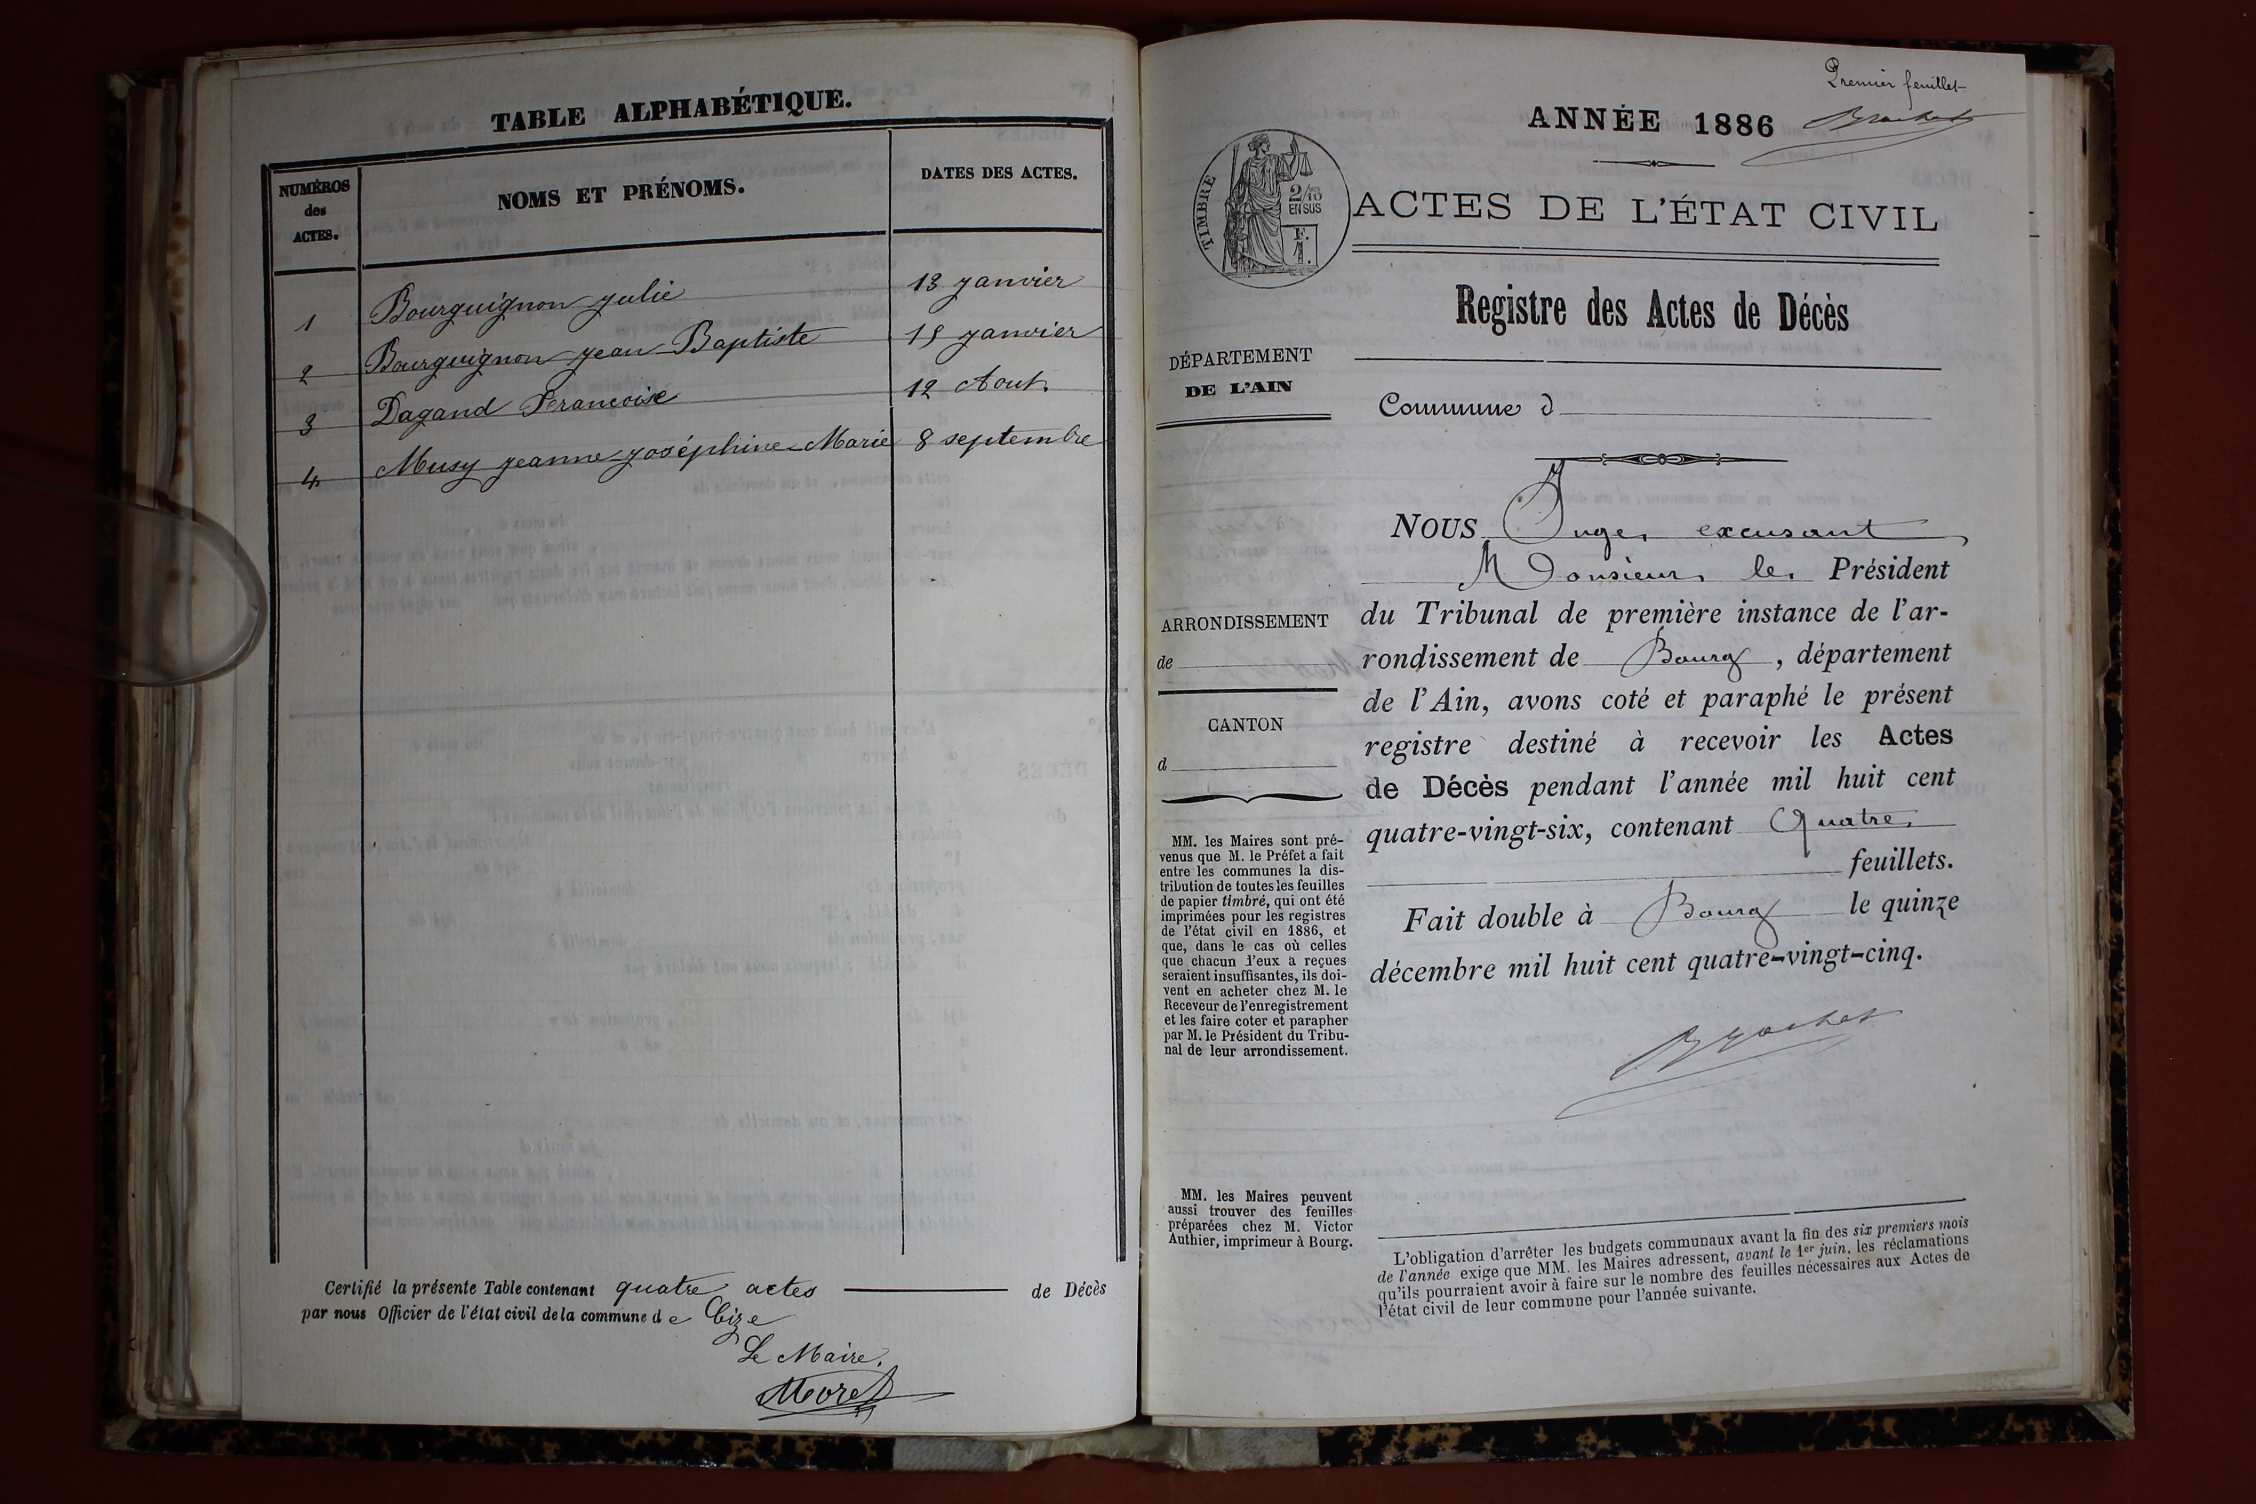 TABLE ALPHABÉTIQUE.
NUMÉROS
des
ACTES.
NOMS ET PRÉNOMS.
DATES DES ACTES.
1 Bourguignon Julie 13 Janvier
2 Bourguignon Jean Baptiste 15 Janvier
3 Dagand Francoise 12 Aout.
4 Musy Jeanne Joséphine Marie 8 septembre
Certifié la présente Table contenant quatre actes de Décès
par nous Officier de l'état civil de la commune de Cize
Le Maire.
Moret
Premier feuillet
ANNÉE 1886
TIMBRE
2/10
EN SUS
F.
1.
ACTES DE L'ÉTAT CIVIL
Registre des Actes de Décès
DÉPARTEMENT
DE L'AIN
Commune d
ARRONDISSEMENT
de
CANTON
d
MM. les Maires sont pré-
venus que M. le Préfet a fait
entre les communes la dis-
tribution de toutes les feuilles
de papier timbré, qui ont été
imprimées pour les registres
de l'état civil en 1886, et
que, dans le cas où celles
que chacun d'eux a reçues
seraient insuffisantes, ils doi-
vent en acheter chez M. le
Receveur de l'enregistrement
et les faire coter et parapher
par M. le Président du Tribu-
nal de leur arrondissement.
MM. les Maires peuvent
aussi trouver des feuilles
préparées chez M. Victor
Authier, imprimeur à Bourg.
NOUS Juge, excusant
Monsieur le Président
du Tribunal de première instance de l'ar-
rondissement de Bourg, département
de l'Ain, avons coté et paraphé le présent
registre destiné à recevoir les Actes
de Décès pendant l'année mil huit cent
quatre-vingt-six, contenant Quatre
feuillets.
Fait double à Bourg le quinze
décembre mil huit cent quatre-vingt-cinq.
L'obligation d'arrêter les budgets communaux avant la fin des six premiers mois
de l'année exige que MM. les Maires adressent, avant le 1er juin, les réclamations
qu'ils pourraient avoir à faire sur le nombre des feuilles nécessaires aux Actes de
l'état civil de leur commune pour l'année suivante.